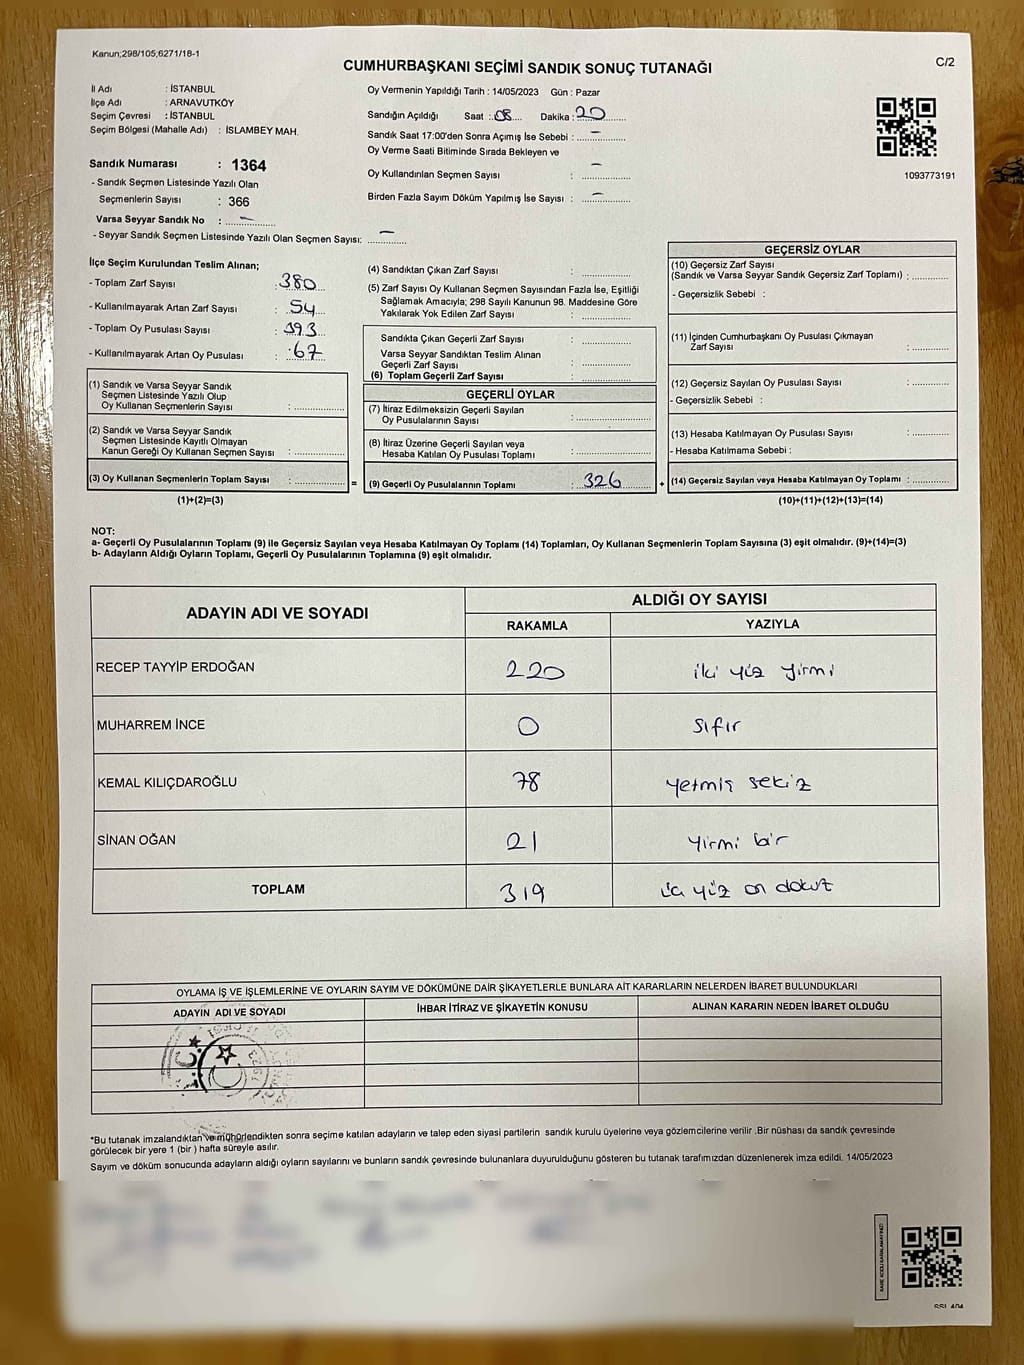 Kanun;298/105,6271/18-1
C/2
CUMHURBAŞKANI SEÇİMİ SANDIK SONUÇ TUTANAĞI
İl Adı : İSTANBUL
İlçe Adı : ARNAVUTKÖY
Seçim Çevresi : İSTANBUL
Seçim Bölgesi (Mahalle Adı) : İSLAMBEY MAH.
Sandık Numarası : 1364
- Sandık Seçmen Listesinde Yazılı Olan
Seçmenlerin Sayısı : 366
Varsa Seyyar Sandık No : –
- Seyyar Sandık Seçmen Listesinde Yazılı Olan Seçmen Sayısı: –
Oy Vermenin Yapıldığı Tarih : 14/05/2023 Gün : Pazar
Sandığın Açıldığı Saat : 08 Dakika : 20
Sandık Saat 17:00'den Sonra Açımış İse Sebebi : –
Oy Verme Saati Bitiminde Sırada Bekleyen ve
Oy Kullandırılan Seçmen Sayısı : –
Birden Fazla Sayım Döküm Yapılmış İse Sayısı : –
1093773191
İlçe Seçim Kurulundan Teslim Alınan;
- Toplam Zarf Sayısı : 380
- Kullanılmayarak Artan Zarf Sayısı : 54
- Toplam Oy Pusulası Sayısı : 393
- Kullanılmayarak Artan Oy Pusulası : 67
(1) Sandık ve Varsa Seyyar Sandık
Seçmen Listesinde Yazılı Olup
Oy Kullanan Seçmenlerin Sayısı :
(2) Sandık ve Varsa Seyyar Sandık
Seçmen Listesinde Kayıtlı Olmayan
Kanun Gereği Oy Kullanan Seçmen Sayısı :
(3) Oy Kullanan Seçmenlerin Toplam Sayısı :
(1)+(2)=(3)
=
(4) Sandıktan Çıkan Zarf Sayısı :
(5) Zarf Sayısı Oy Kullanan Seçmen Sayısından Fazla İse, Eşitliği
Sağlamak Amacıyla; 298 Sayılı Kanunun 98. Maddesine Göre
Yakılarak Yok Edilen Zarf Sayısı :
Sandıkta Çıkan Geçerli Zarf Sayısı :
Varsa Seyyar Sandıktan Teslim Alınan
Geçerli Zarf Sayısı :
(6) Toplam Geçerli Zarf Sayısı :
GEÇERLİ OYLAR
(7) İtiraz Edilmeksizin Geçerli Sayılan
Oy Pusulalarının Sayısı :
(8) İtiraz Üzerine Geçerli Sayılan veya
Hesaba Katılan Oy Pusulası Toplamı :
(9) Geçerli Oy Pusulalarının Toplamı : 326
+
GEÇERSİZ OYLAR
(10) Geçersiz Zarf Sayısı
(Sandık ve Varsa Seyyar Sandık Geçersiz Zarf Toplamı) :
- Geçersizlik Sebebi :
(11) İçinden Cumhurbaşkanı Oy Pusulası Çıkmayan
Zarf Sayısı :
(12) Geçersiz Sayılan Oy Pusulası Sayısı :
- Geçersizlik Sebebi :
(13) Hesaba Katılmayan Oy Pusulası Sayısı :
- Hesaba Katılmama Sebebi :
(14) Geçersiz Sayılan veya Hesaba Katılmayan Oy Toplamı :
(10)+(11)+(12)+(13)=(14)
NOT:
a- Geçerli Oy Pusulalarının Toplamı (9) ile Geçersiz Sayılan veya Hesaba Katılmayan Oy Toplamı (14) Toplamları, Oy Kullanan Seçmenlerin Toplam Sayısına (3) eşit olmalıdır. (9)+(14)=(3)
b- Adayların Aldığı Oyların Toplamı, Geçerli Oy Pusulalarının Toplamına (9) eşit olmalıdır.
ADAYIN ADI VE SOYADI
ALDIĞI OY SAYISI
RAKAMLA YAZIYLA
RECEP TAYYİP ERDOĞAN 220 iki yüz yirmi
MUHARREM İNCE 0 sıfır
KEMAL KILIÇDAROĞLU 78 yetmiş sekiz
SİNAN OĞAN 21 yirmi bir
TOPLAM 319 üç yüz on dokuz
OYLAMA İŞ VE İŞLEMLERİNE VE OYLARIN SAYIM VE DÖKÜMÜNE DAİR ŞİKAYETLERLE BUNLARA AİT KARARLARIN NELERDEN İBARET BULUNDUKLARI
ADAYIN ADI VE SOYADI İHBAR İTİRAZ VE ŞİKAYETİN KONUSU ALINAN KARARIN NEDEN İBARET OLDUĞU
*Bu tutanak imzalandıktan ve mühürlendikten sonra seçime katılan adayların ve talep eden siyasi partilerin sandık kurulu üyelerine veya gözlemcilerine verilir .Bir nüshası da sandık çevresinde
görülecek bir yere 1 (bir ) hafta süreyle asılır.
Sayım ve döküm sonucunda adayların aldığı oyların sayılarını ve bunların sandık çevresinde bulunanlara duyurulduğunu gösteren bu tutanak tarafımızdan düzenlenerek imza edildi. 14/05/2023